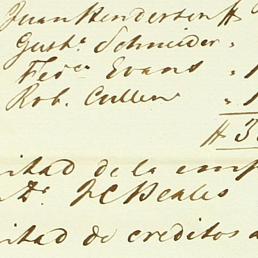 Juan Henderson #
Gust.º Schneider "
Fed.co Evans "
Rob. Cullen "
# 3
mitad de la emp
Dr. J C Beales
mitad de creditos a